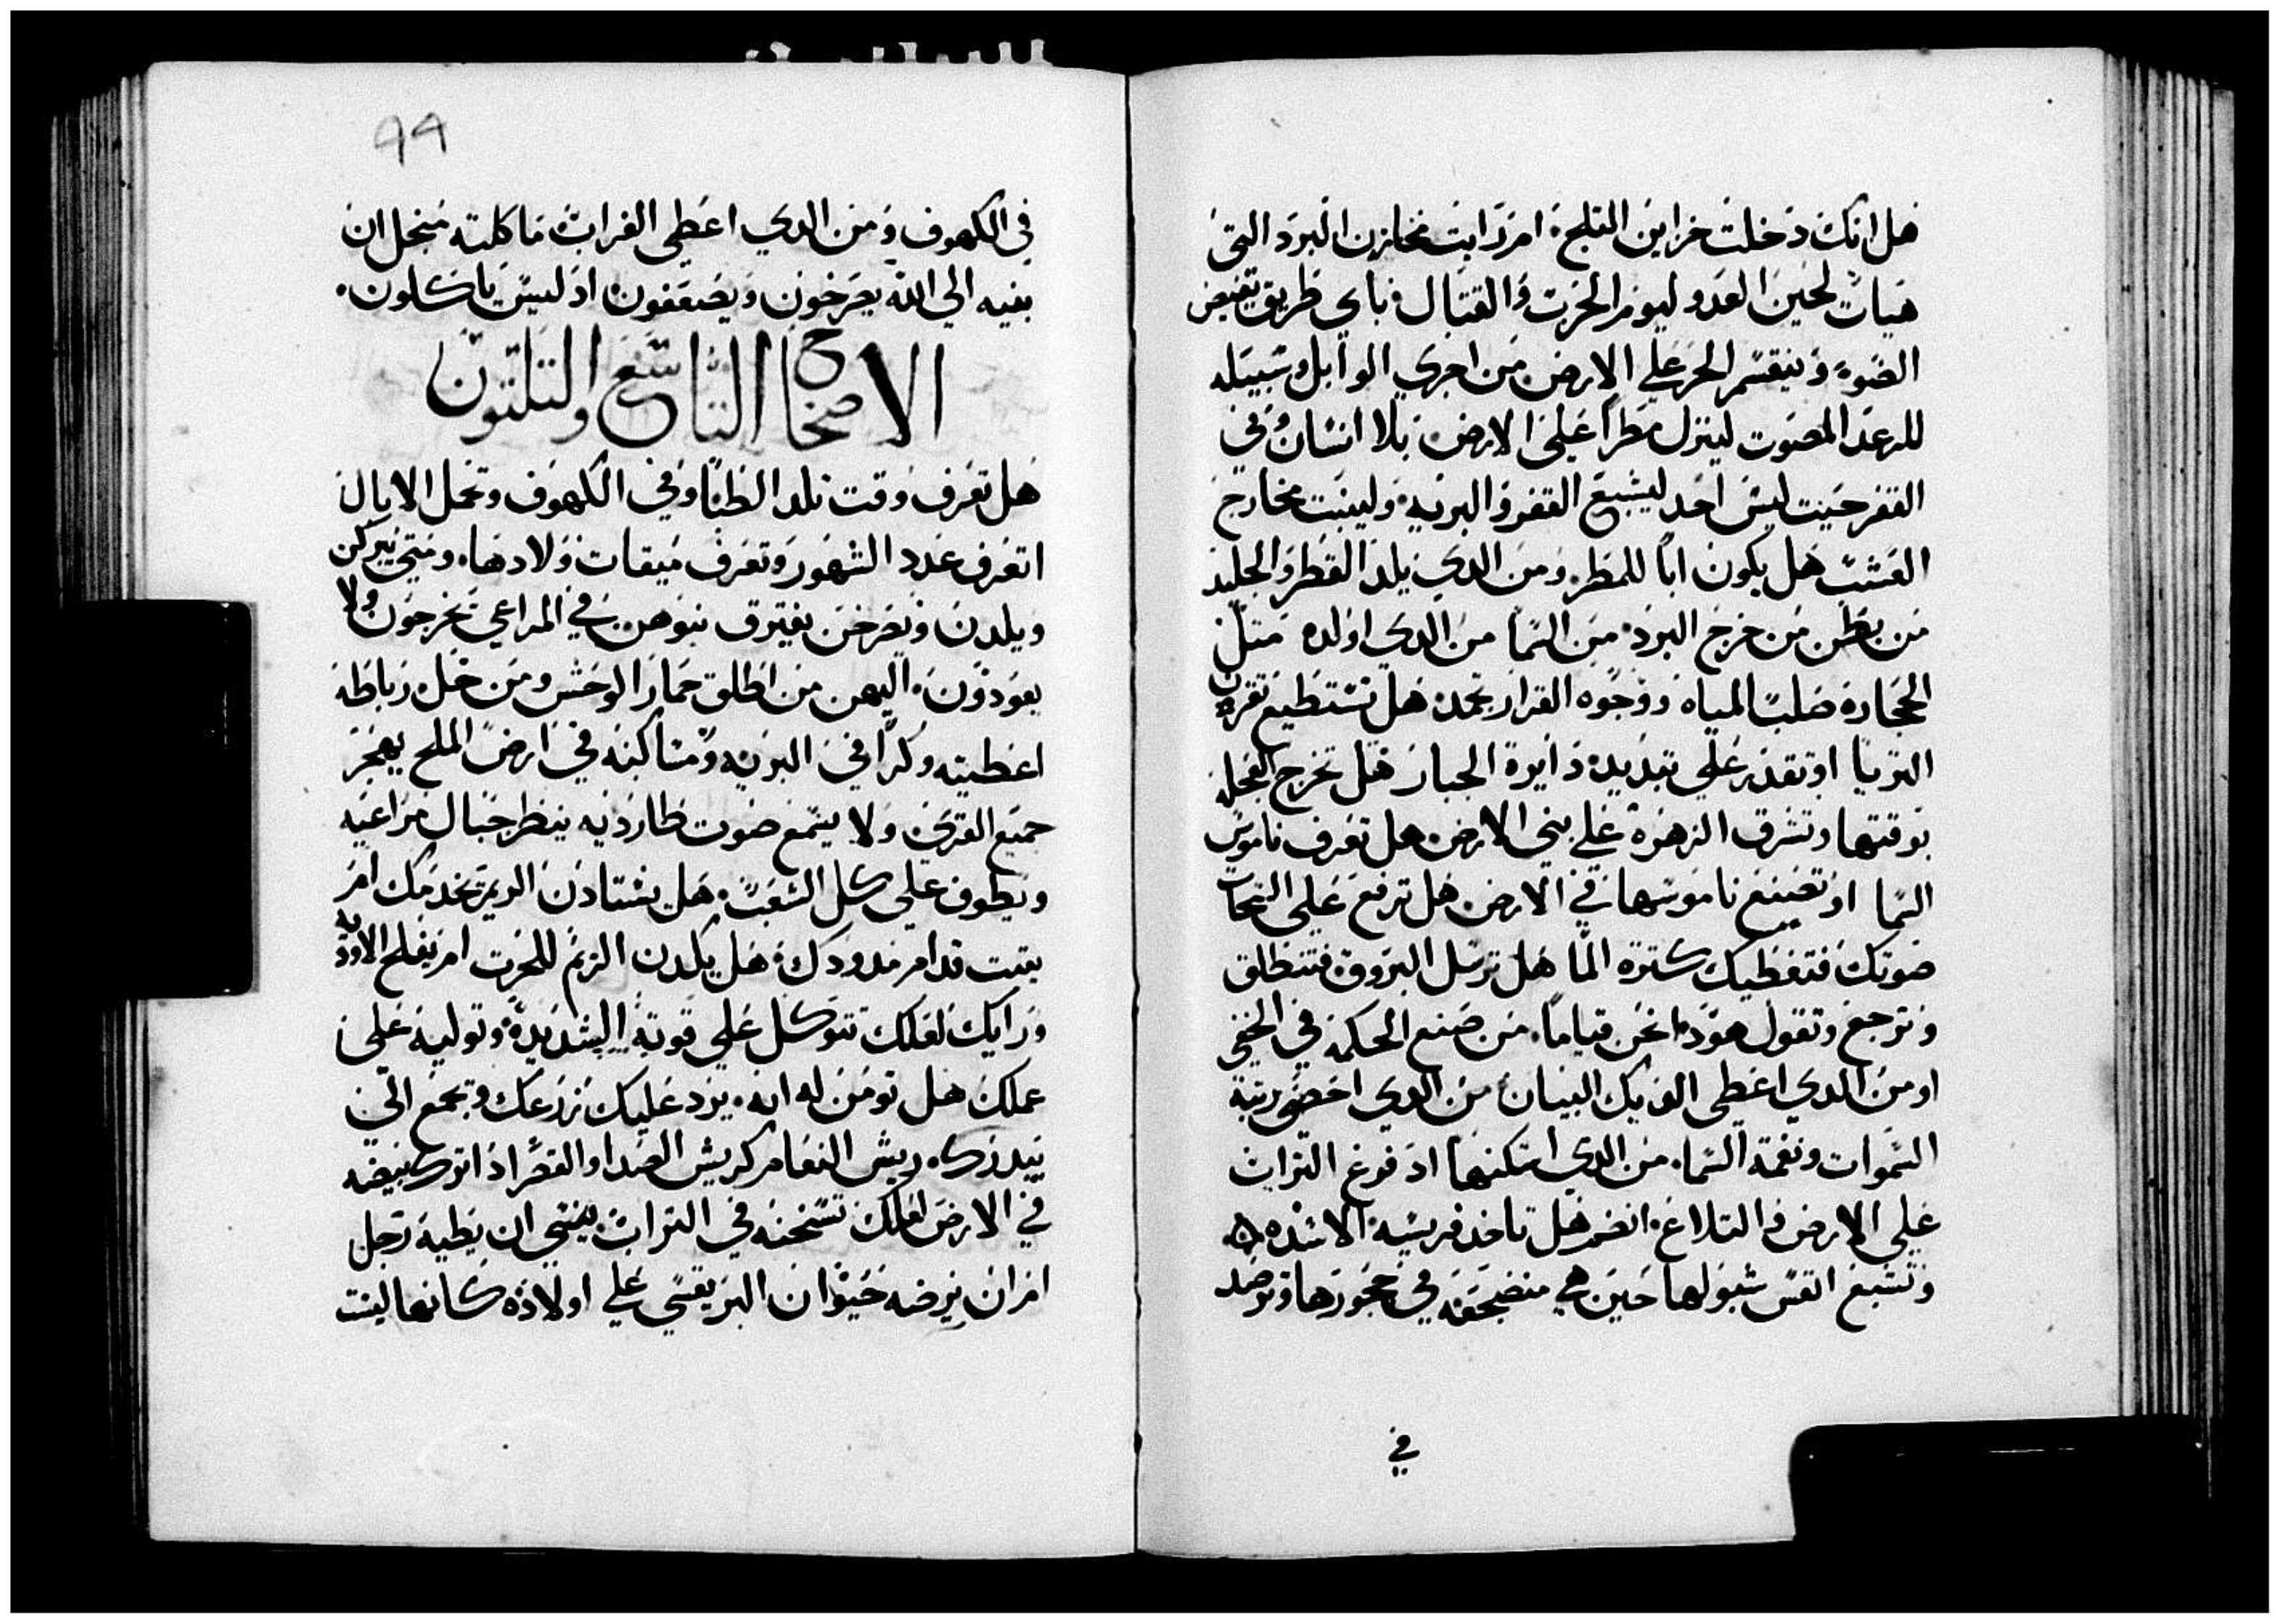 هل انك دخلت خزاين الثلج ام رايت مخازن البرد التي
هيات لحين العدو ليوم الحرب والقتال و باي طريق تفيض
الضوء وينقسم الحر علي الارض من اجري الوابل وسبيله
للرعد المصوت لينزل مطراً علي الارض بلا انسان وفي
القفر حيث ليس احد ليشبع القفر والبريه ولينبت مخارج
العشب هل يكون اباً للمطر ومن الدي يلد القطر والجليد
من بطن من خرج البرد من السما من الدي اولده مثل
الحجارة صلب المياه ووجوه القرار تجمد هل تستطيع تقرن
التريا او تقدر علي تبديد دايرة الجبار هل تخرج العجله
بوقتها وتشرق الزهرة علي بني الارض هل تعرف ناموس
السما او تضع ناموسها في الارض هل ترفع علي السحاب
صوتك فتغطيك سترة الما هل ترسل البروق فتنطلق
وترجع وتقول هودا نحن قياماً من صنع الحكمة في الخفي
او من الدي اعطي الديك البيان من الدي احصي رتبة
السموات ونغمة السما من الدي اسكنها اد فرغ التراب
علي الارض والتلاع انضم هل تاخد فريسة الاسد
وتشبع انفس شبولها حين هي منضجعه في حجورها وترصد
في
99
في الكهوف ومن الدي اعطي الغراب ماكلته من اجل ان
بنيه الي الله يصرخون ويضعفون اد ليس ياكلون
الاصحاح التاسع والتلتون
هل تعرف وقت تلد الظبا وفي الكهوف وتحمل الايال
اتعرف عدد الشهور وتعرف ميقات ولادها ومتي يبركن
ويلدن ويصرخن يفترق بنوهن في المراعي يخرجون ولا
يعودون اليهن من اطلق حمار الوحش ومن حل رباطه
اعطيته وكراً في البريه ومساكنه في ارض الملح يهجر
جميع القري ولا يسمع صوت طارديه ينظر جبال مراعيه
ويطوف علي كل الشعب هل يشتا دن الريم تخدمك ام
يبت قدام مدودك هل يكدن الريم للحرت ام يفلح الاوديه
ورايك لعلك تتوكل علي قوته الشديدة وتوليه علي
عملك هل تومن له انه يرد عليك زرعك وتجمع الي
بيدرك ريش النعام كريش الصدا والقصر اد اترك بيضه
في الارض لعلك تسخنه في التراب ينسي ان يطيه رجل
ام ان يرضه حيوان البر يقسي علي اولاده كانها ليست